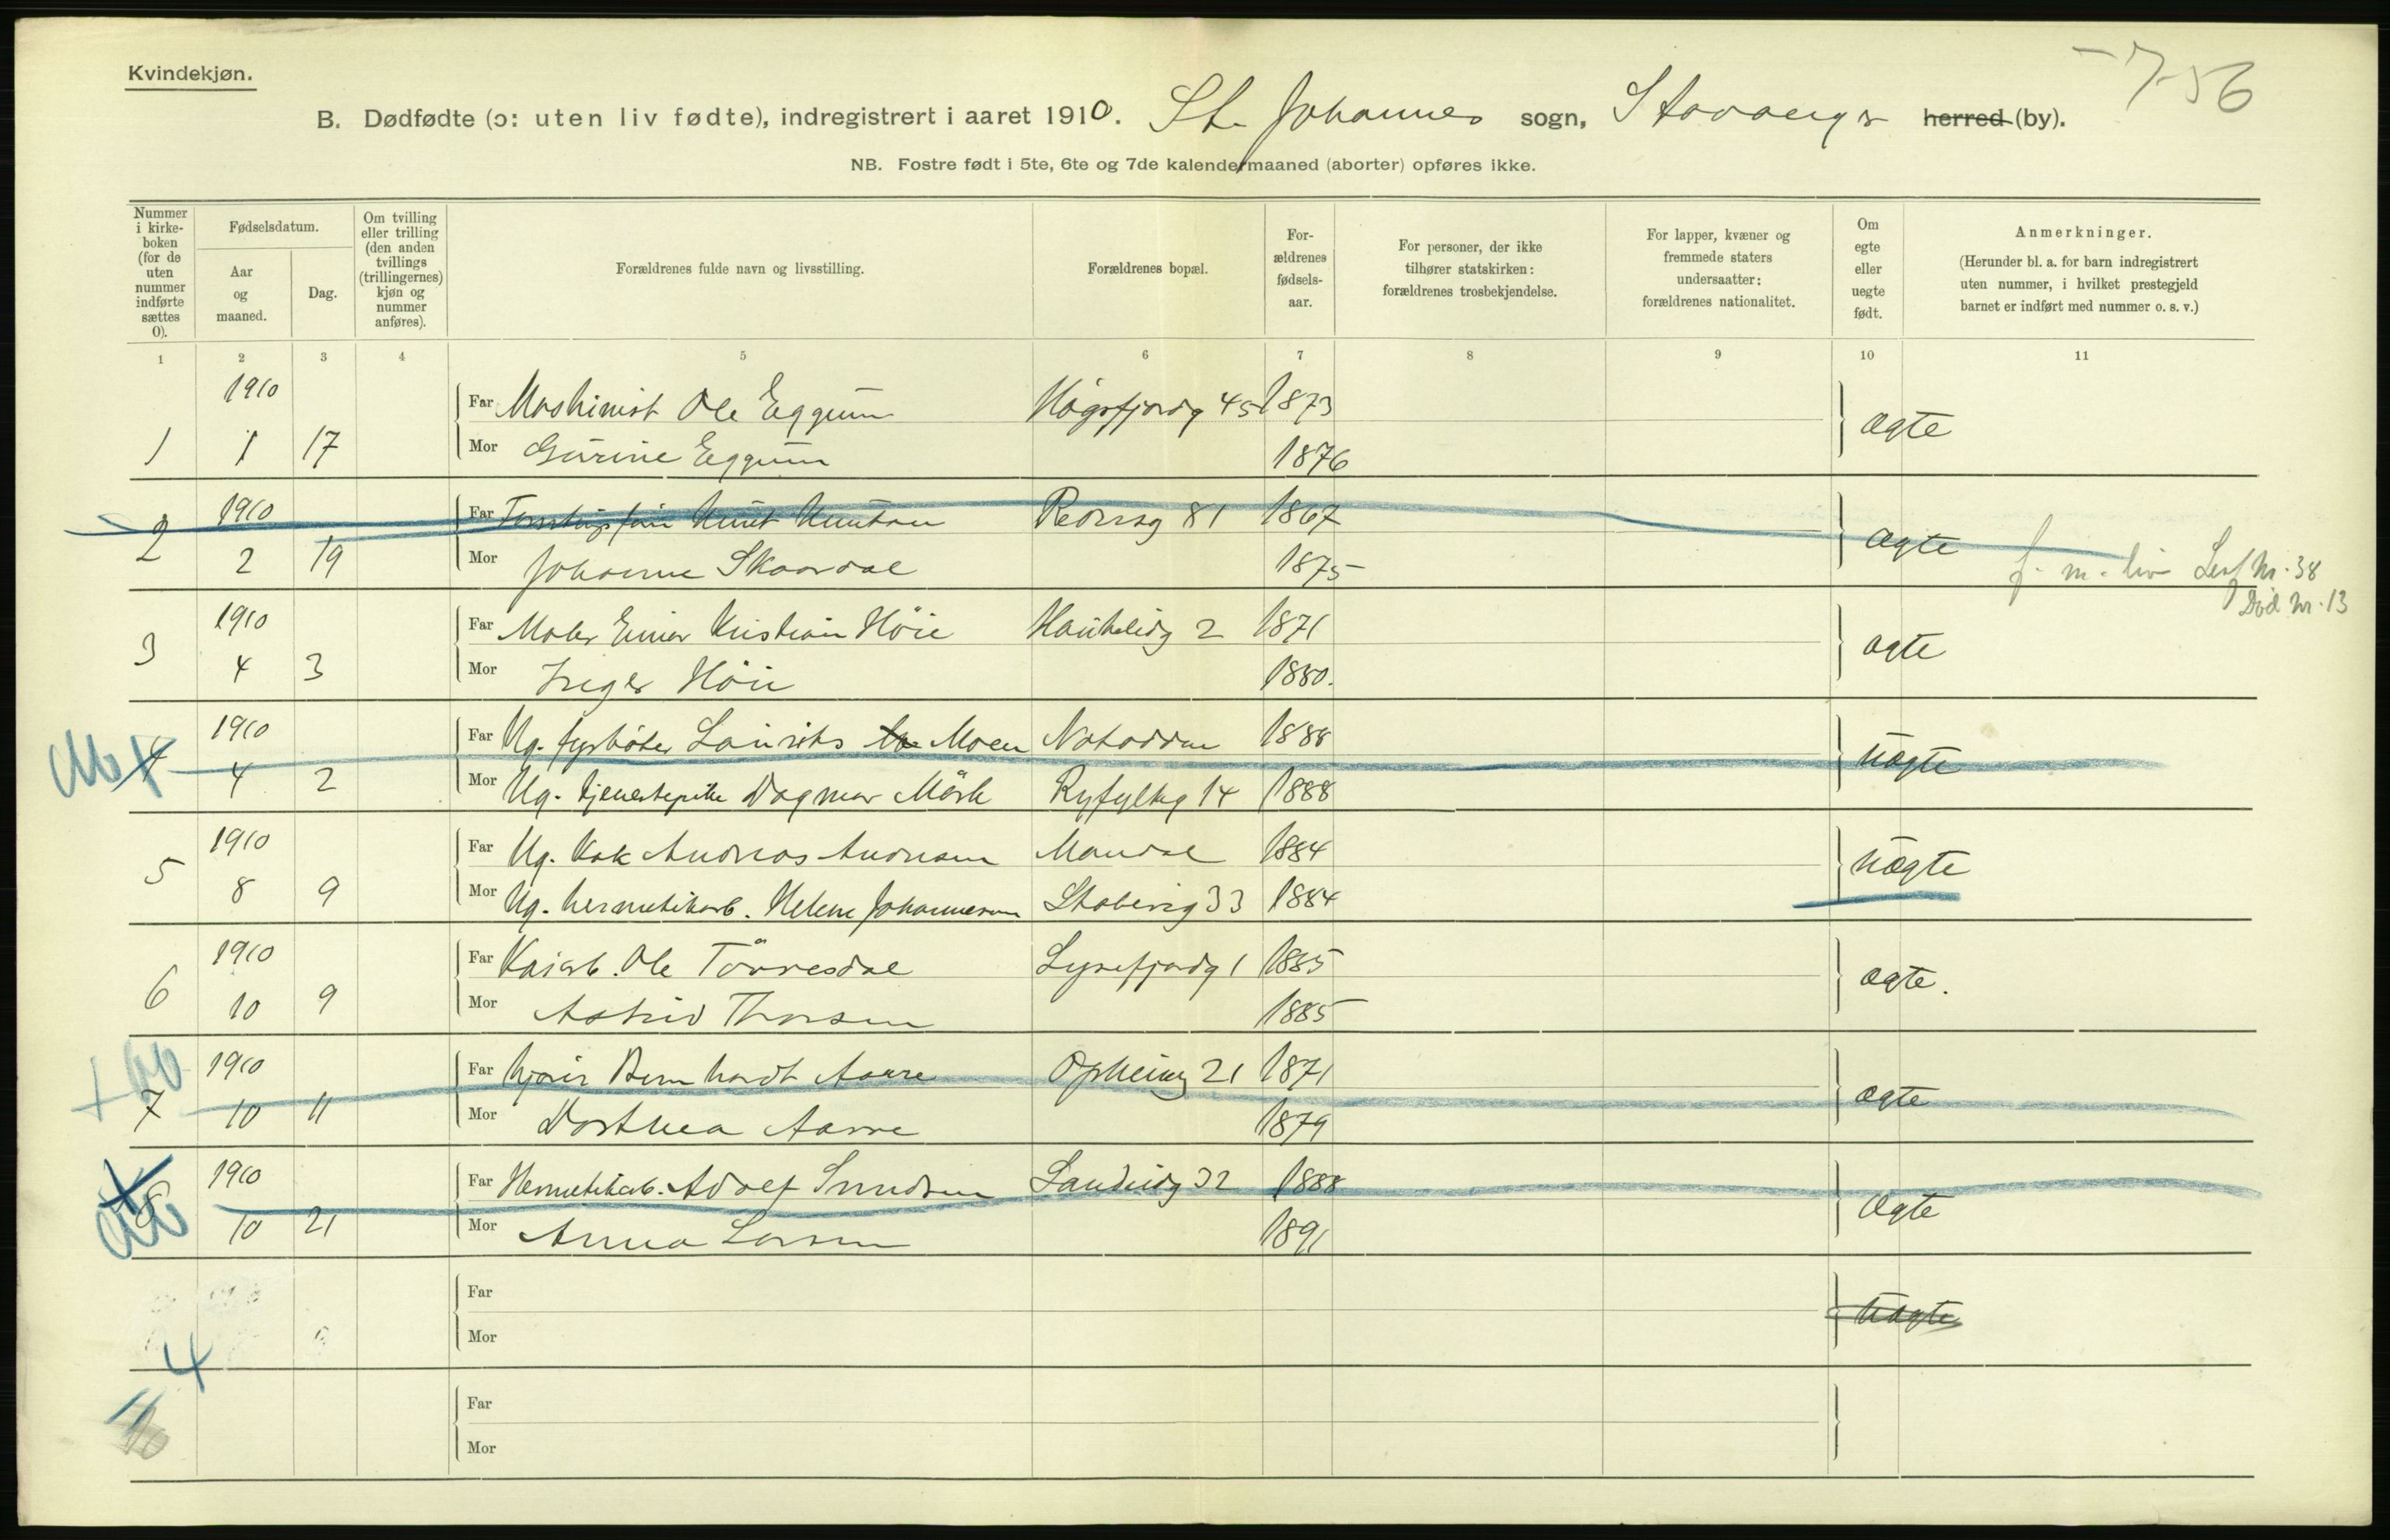 Kvindekjøn.
-756
B. Dødfødte (ɔ: uten liv fødte), indregistrert i aaret 1910. St. Johannes sogn, Stavanger herred (by).
NB. Fostre født i 5te, 6te og 7de kalendermaaned (aborter) opføres ikke.
Nummer i kirke-boken (for de uten nummer indførte sættes 0).
Fødselsdatum.
Aar og maaned.
Dag.
Om tvilling eller trilling (den anden tvillings (trillingernes) kjøn og nummer anføres).
Forældrenes fulde navn og livsstilling.
Forældrenes bopæl.
For-ældrenes fødsels-aar.
For personer, der ikke tilhører statskirken: forældrenes trosbekjendelse.
For lapper, kvæner og fremmede staters undersaatter: forældrenes nationalitet.
Om egte eller uegte født.
Anmerkninger.
(Herunder bl. a. for barn indregistrert uten nummer, i hvilket prestegjeld barnet er indført med nummer o. s. v.)
1 2 3 4 5 6 7 8 9 10 11
1910 Far Maskinist Ole Eggum Høgsfjordg 45 1873
1 1 17 Mor Gurine Eggum 1876 ægte
2 1910 Far Knut Knutsen Pedersg 81 1867
2 19 Mor Johanne Skaardal 1875 ægte f. m. liv Lev Nr. 38
Død Nr. 13
3 1910 Far Maler Einar Kristian Høie Haukelidg 2 1871
4 3 Mor Inger Høie 1880. ægte
4 1910 Far Ug. fyrbøter Lauritz Moen Notodden 1888
4 2 Mor Ug. tjenestepike Dagmar Mørk Ryfylkeg 14 1888 uægte
5 1910 Far Ug. Kok Andreas Andresen Mandal 1884
8 9 Mor Ug. hermetikarb. Helene Johannesen 33 1884 uægte
6 1910 Far Kaiarb. Ole Tønnesdal Lysefjordg 1 1885
10 9 Mor Astrid Thorsen 1885 ægte.
7 1910 Far Bernhardt Aarre Opheimg 21 1871
10 11 Mor Dorthea Aarre 1879 ægte
8 1910 Far Hermetikarb. Adolf Knudsen Sandeidg 32 1888
10 21 Mor Anna Larsen 1891 ægte
Far
Mor uægte
4
Far
Mor